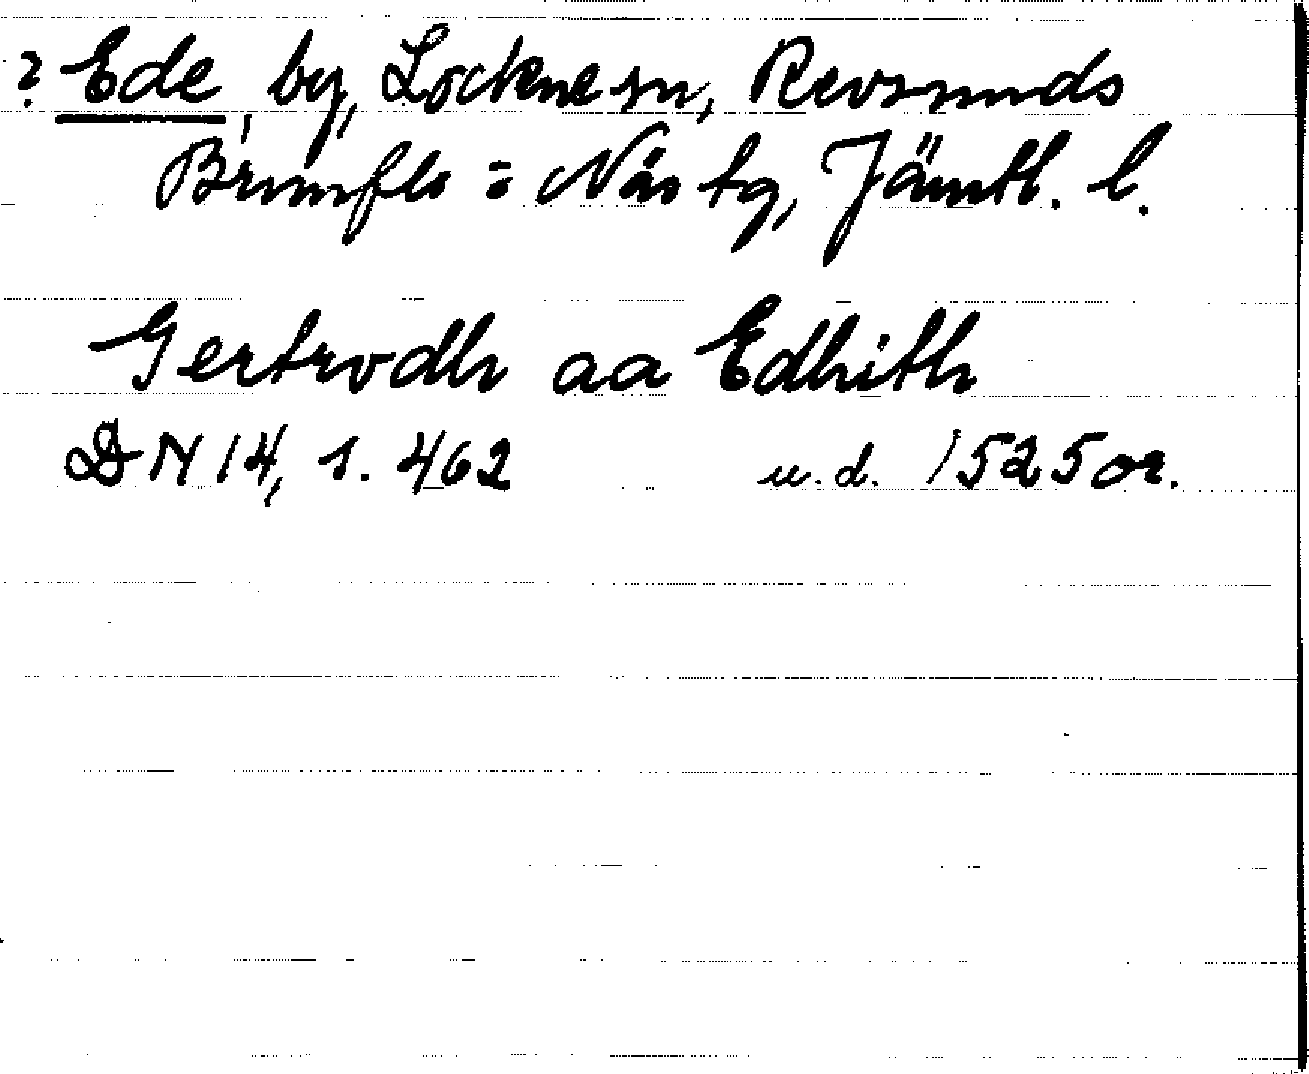 ? Ede, by, Lockne sn, Revsunds
Brunflo = Näs tg, Jämtl. l.
Gertrvdh aa Edhith
DN 14, s. 462 u.d. 1525 or.